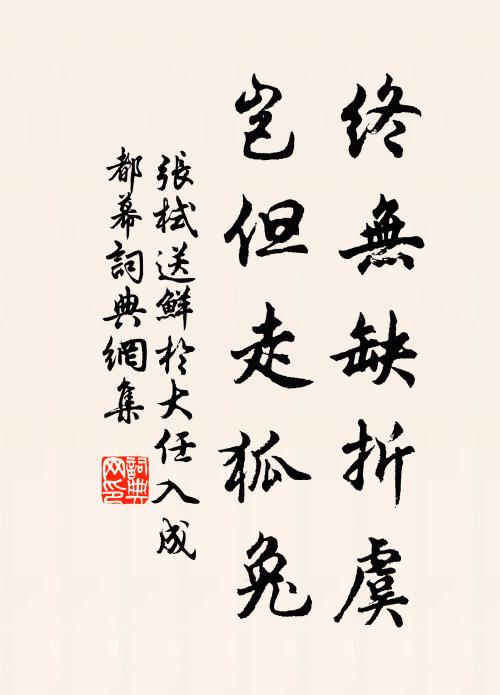 終無缺折虞
豈但走狐兔
張栻送鮮於大任入成
都幕詞典網集
詞典
网印